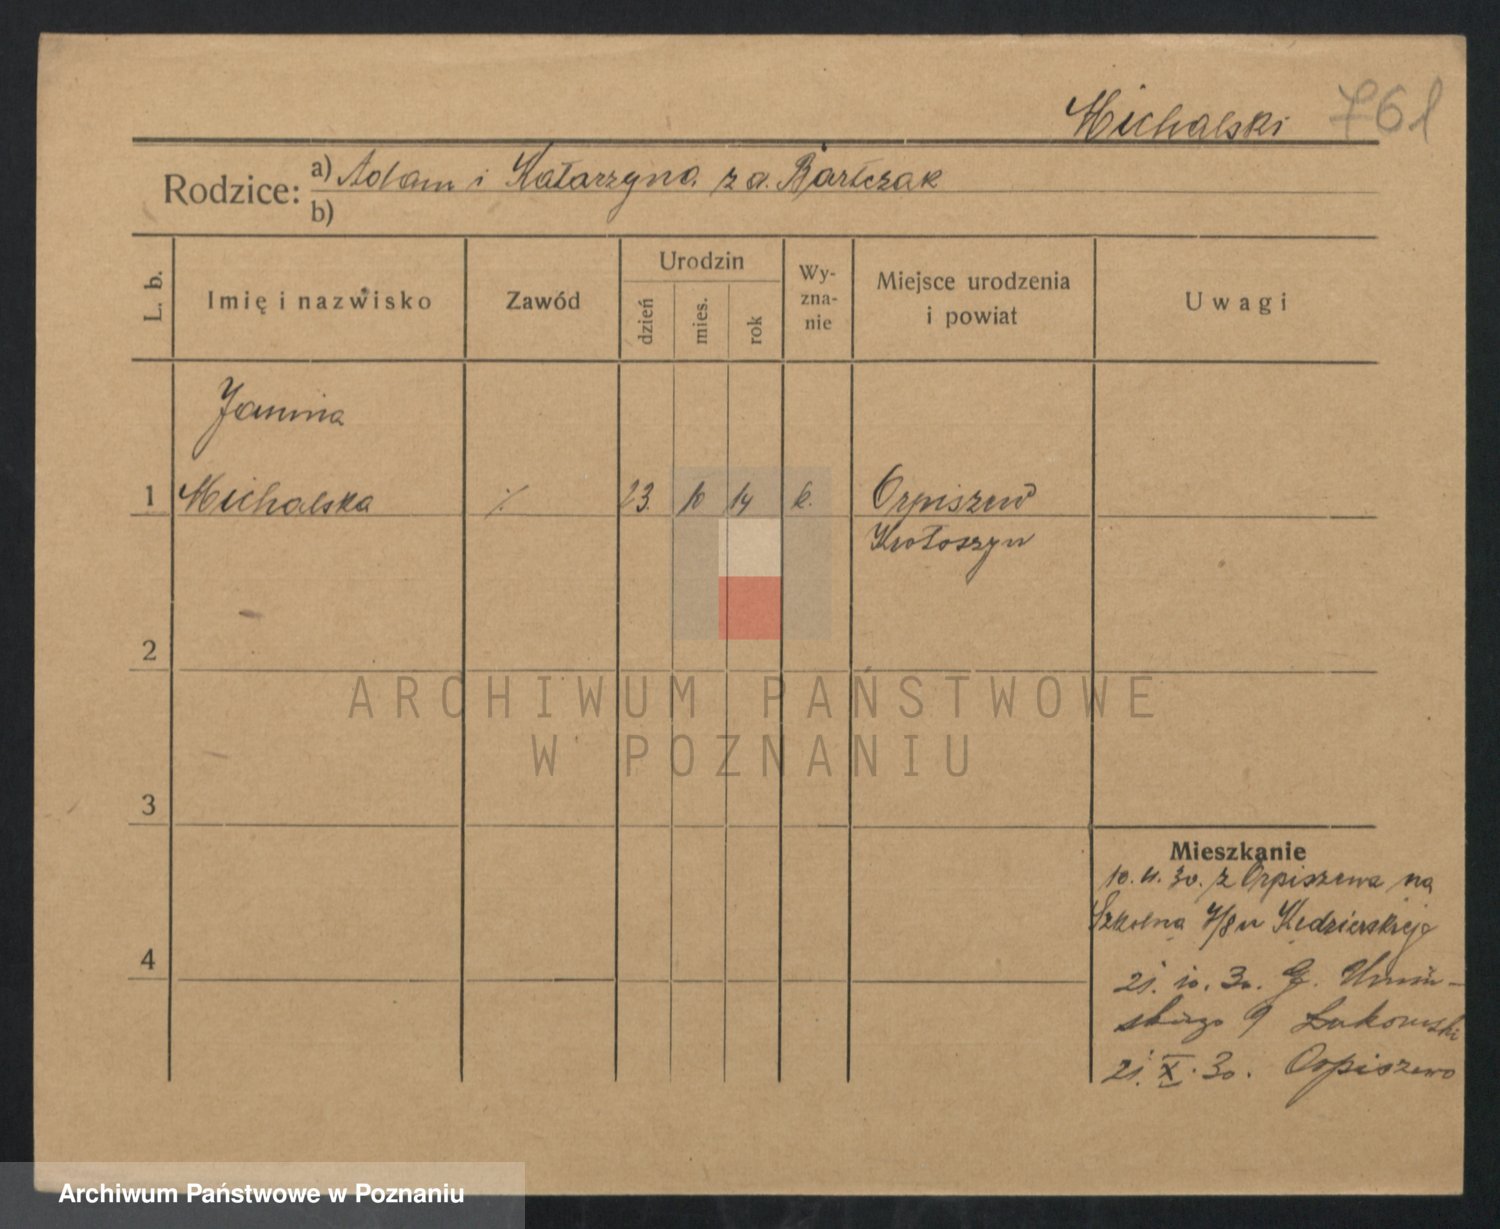 Michalski 761
Rodzice: a) Adam i Katarzyna z d. Bartczak
b)
L. b.
Imię i nazwisko
Zawód
Urodzin
dzień
mies.
rok
Wy-
zna-
nie
Miejsce urodzenia
i powiat
Uwagi
Janina
1 Michalska ./. 23. 10 14 k. Orpiszew
Krotoszyn
2
ARCHIWUM PAŃSTWOWE
W POZNANIU
3
Mieszkanie
10. 4. 30. z Orpiszewa na
Szkolna 7/8 u Kedzierskiej
4
21. 10. 30. G. Umiń-
skiego 9 Lukowski
21. X. 30. Orpiszewo
Archiwum Państwowe w Poznaniu